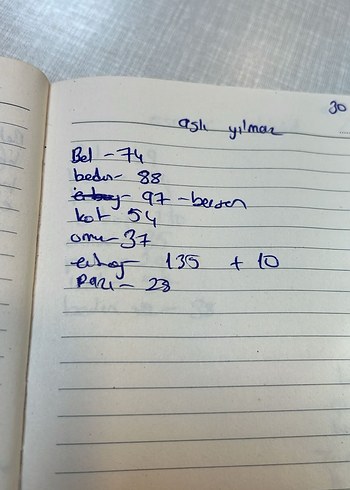 30
aslı yılmaz
Bel - 74
beden - 88
97 - basen
kol 54
omuz - 37
enboy 135 + 10
Pazu - 28